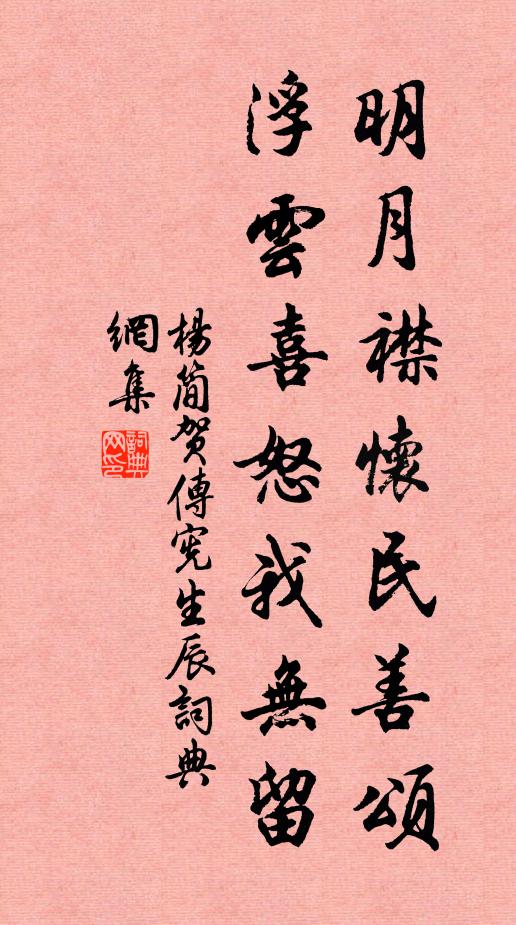 明月襟懷民善頌
浮雲喜怒我無留
楊簡賀傅憲生辰詞典
網集
詞典
网印